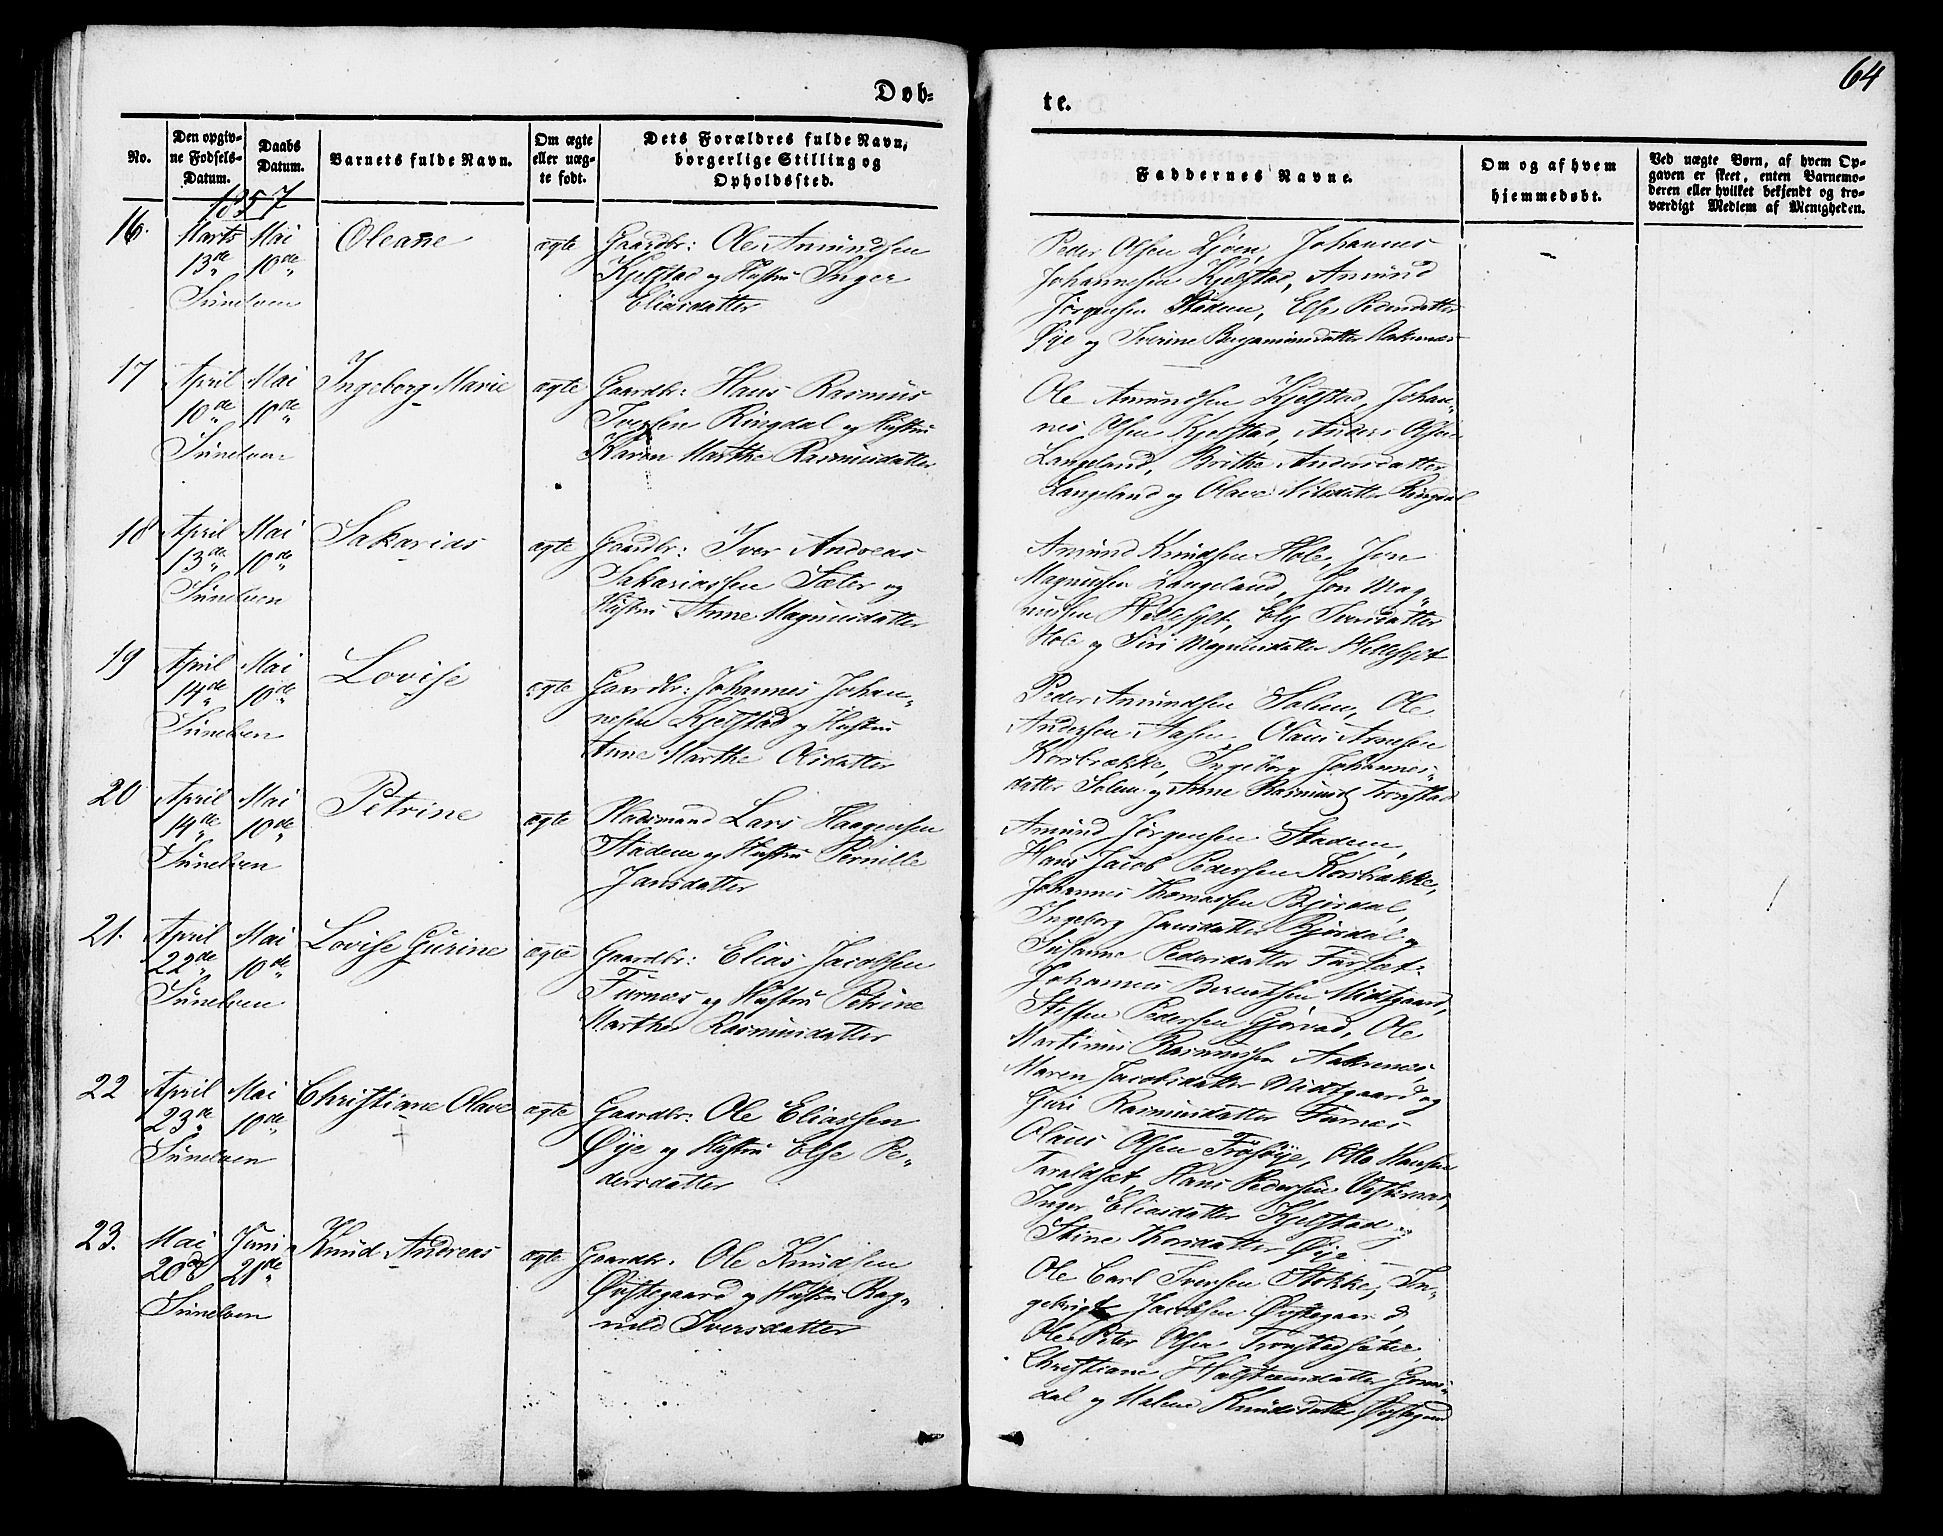 64
Døb-
te.
No.
Den opgiv-
ne Fødsels-
Datum.
Daabs
Datum.
Barnets fulde Navn.
Om ægte
eller uæg-
te født.
Dets Forældres fulde Navn,
borgerlige Stilling og
Opholdssted.
Faddernes Navne.
Om og af hvem
hjemmedøbt.
Ved uægte Børn, af hvem Op-
gaven er skeet, enten Barnemo-
deren eller hvilket bekjendt og tro-
værdigt Medlem af Menigheden.
1857
16.
Marts
13de
Sunelven
Mai
10de
Oleane
ægte
Gaardbr: Ole Amundsen
Kjelstad og Hustru Inger
Eliasdatter
Peder Olsen Ljøen, Johannes
Johannesen Kjelstad, Amund
Jørgensen Stadem, Else Pedersdatter
Øye og Iverine Benjaminsdatter
17
April
10de
Sunelven
Mai
10de
Ingeborg Marie
ægte
Gaardbr: Hans Rasmus
Iversen Ringdal og Hustru
Karen Marthe Rasmusdatter
Ole Amundsen Kjelstad, Johan-
nes Olsen Kjelstad, Anders Olsen
Langeland, Brithe Andersdatter
Langeland og Olave Nilsdatter Ringdal
18
April
13de
Sunelven
Mai
10de
Sakarias
ægte
Gaardbr: Iver Andreas
Sakariassen Sæter og
Hustru Anne Magnusdatter
Amund Knudsen Hole, Jon
Magnussen Langeland, Jon Mag-
nussen Hellesylt, Ely Iversdatter
Hole og Siri Magnusdatter Hellesylt
19
April
14de
Sunelven
Mai
10de
Lovise
ægte
Gaardbr: Johannes Johan-
nesen Kjelstad og Hustru
Anne Marthe Olsdatter
Peder Amundsen Solem, Ole
Andersen Aasen, Olaus Arnesen
Korsbrække, Ingeborg Johannes-
datter Solem og Anne Rasmusd Tronstad
20
April
19de
Sunelven
Mai
10de
Petrine
ægte
Pladsmand Lars Haagensen
Stadem og Hustru Pernille
Jansdatter
Amund Jørgensen Stadem,
Hans Jacob Pedersen Korsbrække,
Johannes Thomassen Bjørdal,
Ingeborg Jansdatter Bjørdal og
Susanne Pedersdatter Furset
21.
April
22de
Sunelven
Mai
10de
Lovise Gurine
ægte
Gaardbr: Elias Jacobsen
Furnæs og Hustru Petrine
Marthe Rasmusdatter
Johannes Berentsen Midtgaard,
Steffen Pedersen Gjørvad, Ole
Martinus Rasmussen Aaknes,
Maren Jacobsdatter Midtgaard og
Guri Rasmusdatter Furnæs
22
April
23de
Sunelven
Mai
10de
Christiane Olave
ægte
Gaardbr: Ole Eliassen
Øye og Hustru Else Pe-
dersdatter
Olaus Olsen Frøysøye, Otto Hansen
Taraldset, Hans Pedersen
Inger Eliasdatter Kjelstad og
Stine Thorsdatter Øye
23.
Mai
20de
Sunelven
Juni
21de
Knud Andreas
ægte
Gaardbr. Ole Knudsen
Øvstegaard og Hustru Rag-
nild Iversdatter
Ole Carl Iversen Stokke, In-
gebrigt Jacobsen Øvstegaard,
Ole Peter Olsen Tronstadsæter,
Christiane Halsteinsdatter
dal og Malene Knudsdatter Øvstegaard